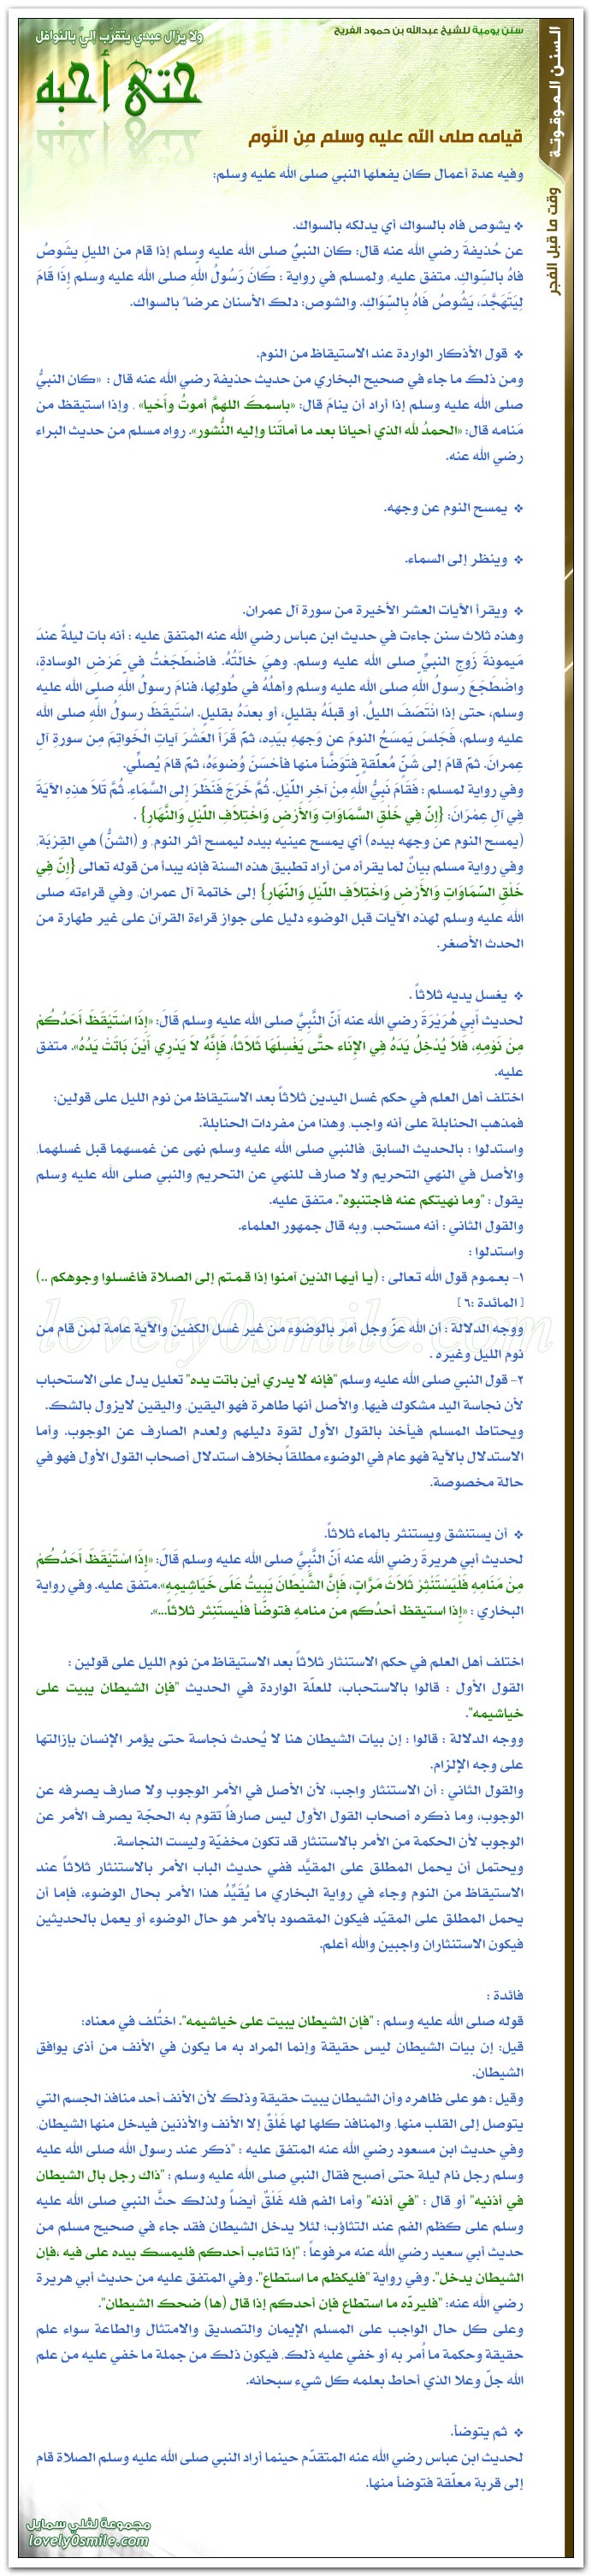 ولا يزال عبدي يتقرب إليَّ بالنوافل
حتى أحبه
سنن يومية للشيخ عبدالله بن حمود الفريح
السنن الموقوتة
وقت ما قبل الفجر
قيامه صلى الله عليه وسلم مِن النَّوم
وفيه عدة أعمال كان يفعلها النبي صلى الله عليه وسلم:
❖ يشوص فاه بالسواك أي يدلكه بالسواك.
عن حُذيفةَ رضي الله عنه قال: كان النبيُّ صلى الله عليه وسلم إذا قام من الليلِ يَشُوصُ
فاهُ بالسِّواكِ. متفق عليه، ولمسلم في رواية : كَانَ رَسُولُ اللهِ صلى الله عليه وسلم إِذَا قَامَ
لِيَتَهَجَّدَ، يَشُوصُ فَاهُ بِالسِّوَاكِ. والشوص: دلك الأسنان عرضاً بالسواك.
❖ قول الأذكار الواردة عند الاستيقاظ من النوم.
ومن ذلك ما جاء في صحيح البخاري من حديث حذيفة رضي الله عنه قال : «كان النبيُّ
صلى الله عليه وسلم إذا أراد أن ينامَ قال: «باسمكَ اللهمَّ أموتُ وأَحْيا» ، وإذا استيقظ من
مَنامه قال: «الحمدُ لله الذي أحيانا بعد ما أماتَنا وإليه النُّشور». رواه مسلم من حديث البراء
رضي الله عنه.
❖ يمسح النوم عن وجهه.
❖ وينظر إلى السماء.
❖ ويقرأ الآيات العشر الأخيرة من سورة آل عمران.
وهذه ثلاث سنن جاءت في حديث ابن عباس رضي الله عنه المتفق عليه : أنه بات ليلةً عندَ
مَيمونةَ زَوجِ النبيِّ صلى الله عليه وسلم، وهيَ خالَتُهُ. فاضْطَجَعْتُ في عَرْضِ الوسادةِ،
واضْطَجَعَ رسولُ اللهِ صلى الله عليه وسلم وأهلُهُ في طُولِها، فنامَ رسولُ اللهِ صلى الله عليه
وسلم، حتى إذا انْتَصَفَ الليلُ، أو قبلَهُ بقليلٍ، أو بعدَهُ بقليلٍ. اسْتَيقَظَ رسولُ اللهِ صلى الله
عليه وسلم، فَجَلسَ يَمسَحُ النومَ عن وَجههِ بيَدِه، ثمَّ قَرَأَ العَشْرَ آياتِ الْخَواتِمَ مِن سورةِ آلِ
عِمرانَ. ثمَّ قامَ إلى شَنٍّ مُعلّقةٍ فتَوَضَّأَ منها فأحْسَنَ وُضوءَهُ، ثمَّ قامَ يُصلِّي.
وفي رواية لمسلم : فَقَامَ نَبِيُّ اللهِ مِنْ آخِرِ اللَّيْلِ. ثُمَّ خَرَجَ فَنَظَرَ إِلى السَّمَاءِ. ثُمَّ تَلاَ هذِهِ الآيَةَ
فِي آلِ عِمْرَانَ: {إِنَّ فِي خَلْقِ السَّمَاوَاتِ وَالأَرْضِ وَاخْتِلاَفِ اللَّيْلِ وَالنَّهَارِ} .
(يمسح النوم عن وجهه بيده) أي يمسح عينيه بيده ليمسح أثر النوم، و (الشنُّ) هي القِرْبَة،
وفي رواية مسلم بيانٌ لما يقرأه من أراد تطبيق هذه السنة فإنه يبدأ من قوله تعالى {إِنَّ فِي
خَلْقِ السَّمَاوَاتِ وَالأَرْضِ وَاخْتِلاَفِ اللَّيْلِ وَالنَّهَارِ} إلى خاتمة آل عمران، وفي قراءته صلى
الله عليه وسلم لهذه الآيات قبل الوضوء دليل على جواز قراءة القرآن على غير طهارة من
الحدث الأصغر.
❖ يغسل يديه ثلاثاً .
لحديث أَبِي هُرَيْرَةَ رضي الله عنه أَنَّ النَّبِيَّ صلى الله عليه وسلم قَالَ: «إِذَا اسْتَيْقَظَ أَحَدُكُمْ
مِنْ نَوْمِهِ، فَلاَ يُدْخِلْ يَدَهُ فِي الإِنَاءِ حتَّى يَغْسِلَهَا ثَلاَثاً، فَإِنَّهُ لاَ يَدْرِي أَيْنَ بَاتَتْ يَدُهُ». متفق
عليه.
اختلف أهل العلم في حكم غسل اليدين ثلاثاً بعد الاستيقاظ من نوم الليل على قولين:
فمذهب الحنابلة على أنه واجب، وهذا من مفردات الحنابلة.
واستدلوا : بالحديث السابق، فالنبي صلى الله عليه وسلم نهى عن غمسهما قبل غسلهما،
والأصل في النهي التحريم ولا صارف للنهي عن التحريم والنبي صلى الله عليه وسلم
يقول : "وما نهيتكم عنه فاجتنبوه". متفق عليه.
والقول الثاني : أنه مستحب، وبه قال جمهور العلماء.
واستدلوا :
١- بعموم قول الله تعالى : (يا أيها الذين آمنوا إذا قمتم إلى الصلاة فاغسلوا وجوهكم ..)
[ المائدة :٦ ]
ووجه الدلالة : أن الله عزّ وجل أمر بالوضوء من غير غسل الكفين والآية عامة لمن قام من
نوم الليل وغيره .
٢- قول النبي صلى الله عليه وسلم "فإنه لا يدري أين باتت يده" تعليل يدل على الاستحباب
لأن نجاسة اليد مشكوك فيها، والأصل أنها طاهرة فهو اليقين، واليقين لايزول بالشك.
ويحتاط المسلم فيأخذ بالقول الأول لقوة دليلهم ولعدم الصارف عن الوجوب، وأما
الاستدلال بالآية فهو عام في الوضوء مطلقاً بخلاف استدلال أصحاب القول الأول فهو في
حالة مخصوصة.
❖ أن يستنشق ويستنثر بالماء ثلاثاً.
لحديث أبي هريرةَ رضي الله عنه أَنَّ النَّبِيَّ صلى الله عليه وسلم قَالَ: «إِذَا اسْتَيْقَظَ أَحَدُكُمْ
مِنْ مَنَامِهِ فَلْيَسْتَنْثِرْ ثَلاَثَ مَرَّاتٍ، فَإِنَّ الشَّيْطَانَ يَبِيتُ عَلَى خَيَاشِيمِهِ».متفق عليه. وفي رواية
البخاري : «إِذا استيقظ أحدُكم من منامهِ فتوضَّأ فلْيستَنِثر ثلاثاً...».
اختلف أهل العلم في حكم الاستنثار ثلاثاً بعد الاستيقاظ من نوم الليل على قولين :
القول الأول : قالوا بالاستحباب، للعلّة الواردة في الحديث "فإن الشيطان يبيت على
خياشيمه".
ووجه الدلالة : قالوا : إن بيات الشيطان هنا لا يُحدث نجاسة حتى يؤمر الإنسان بإزالتها
على وجه الإلزام.
والقول الثاني : أن الاستنثار واجب، لأن الأصل في الأمر الوجوب ولا صارف يصرفه عن
الوجوب، وما ذكره أصحاب القول الأول ليس صارفاً تقوم به الحجّة يصرف الأمر عن
الوجوب لأن الحكمة من الأمر بالاستنثار قد تكون مخفيّة وليست النجاسة.
ويحتمل أن يحمل المطلق على المقيَّد ففي حديث الباب الأمر بالاستنثار ثلاثاً عند
الاستيقاظ من النوم وجاء في رواية البخاري ما يُقَيِّدُ هذا الأمر بحال الوضوء، فإما أن
يحمل المطلق على المقيّد فيكون المقصود بالأمر هو حال الوضوء أو يعمل بالحديثين
فيكون الاستنثاران واجبين والله أعلم.
فائدة :
قوله صلى الله عليه وسلم : "فإن الشيطان يبيت على خياشيمه". اختُلف في معناه:
قيل: إن بيات الشيطان ليس حقيقة وإنما المراد به ما يكون في الأنف من أذى يوافق
الشيطان.
وقيل : هو على ظاهره وأن الشيطان يبيت حقيقة وذلك لأن الأنف أحد منافذ الجسم التي
يتوصل إلى القلب منها، والمنافذ كلها لها غَلْقٌ إلا الأنف والأذنين فيدخل منها الشيطان،
وفي حديث ابن مسعود رضي الله عنه المتفق عليه : "ذكر عند رسول الله صلى الله عليه
وسلم رجل نام ليلة حتى أصبح فقال النبي صلى الله عليه وسلم : "ذاك رجل بال الشيطان
في أذنيه" أو قال : "في أذنه" وأما الفم فله غَلْقٌ أيضاً ولذلك حثَّ النبي صلى الله عليه
وسلم على كظم الفم عند التثاؤب؛ لئلا يدخل الشيطان فقد جاء في صحيح مسلم من
حديث أبي سعيد رضي الله عنه مرفوعاً : "إذا تثاءب أحدكم فليمسك بيده على فيه ،فإن
الشيطان يدخل". وفي رواية "فليكظم ما استطاع". وفي المتفق عليه من حديث أبي هريرة
رضي الله عنه: "فليردّه ما استطاع فإن أحدكم إذا قال (ها) ضحك الشيطان".
وعلى كل حال الواجب على المسلم الإيمان والتصديق والامتثال والطاعة سواء علم
حقيقة وحكمة ما أُمر به أو خفي عليه ذلك، فيكون ذلك من جملة ما خفي عليه من علم
الله جلّ وعلا الذي أحاط بعلمه كل شيء سبحانه.
❖ ثم يتوضأ.
لحديث ابن عباس رضي الله عنه المتقدّم حينما أراد النبي صلى الله عليه وسلم الصلاة قام
إلى قربة معلّقة فتوضأ منها.
lovely0smile.com
مجموعة لفلي سمايل
lovely0smile.com